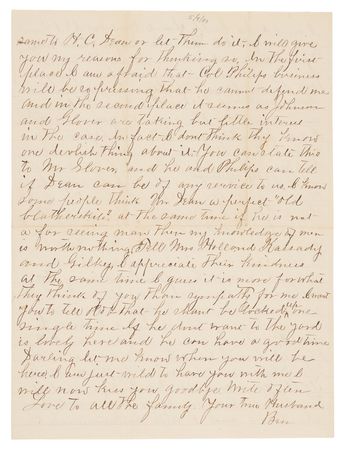 same to H. C. Dean or let them do it. I will give
you my reasons for thinking so. In the first
place I am afraid that Col Philips business
will be so pressing that he cannot defend me
and in the second place it seems as Johnson
and Glover are taking but little interest
in the case. In fact I dont think they know
one devlish thing about it. You can state this
to Mr Glover, and he and Philips can tell
if Dean can be of any service to us. I know
some people think Mr Dean a perfect "old
blatherskite" at the same time if he is not
a far seeing man then my knowledge of men
is worth nothing. Tell Mrs Holland Kassady
and I appreciate their kindness
at the same time I guess it is more for what
they think of you than sympathy for me. I want
you to tell that he shant be locked up one
single time if he dont want to. The yard
is lovely here and he can have a good time
Darling let me know when you will be
here. I am just wild to have you with me. I
will now kiss you goodbye. Write often
Love to all the family. Your true Husband